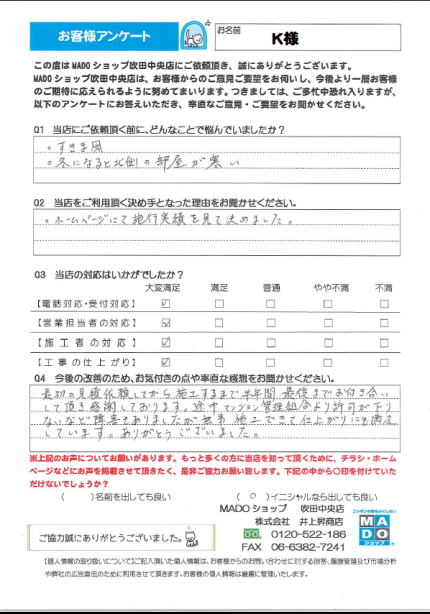 お客様アンケート
お名前
K様
この度はMADOショップ吹田中央店にご依頼頂き、誠にありがとうございます。
MADOショップ吹田中央店は、お客様からのご意見ご要望をお伺いし、今後より一層お客様
のご期待に応えられるように努めてまいります。つきましては、ご多忙中恐れ入りますが、
以下のアンケートにお答えいただき、率直なご意見・ご要望をお聞かせください。
Q1 当店にご依頼頂く前に、どんなことで悩んでいましたか?
。すきま風
。冬になると北側の部屋が寒い
Q2 当店をご利用頂く決め手となった理由をお聞かせください。
。ホームページにて施行実績を見て決めました。
Q3 当店の対応はいかがでしたか?
大変満足 満足 普通 やや不満 不満
【電話対応・受付対応】
【営業担当者の対応】
【施工者の対応】
【工事の仕上がり】
Q4 今後の改善のため、お気付きの点や率直な感想をお聞かせください。
最初の見積依頼してから施工するまで半年間、最後までお付き合い
して頂き感謝しております。途中マンション管理組合より許可が下り
ないなど障害もありましたが無事施工できて仕上がりにも満足
しています。ありがとうございました。
※上記のお声についてお願いがあります。もっと多くの方に当店を知って頂くために、チラシ・ホーム
ページなどにお声を掲載させて頂きたく、是非ご協力お願い致します。下記の中から〇印を付けていた
だけないでしょうか?
( )名前を出しても良い (○)イニシャルなら出しても良い
MADOショップ 吹田中央店
株式会社 井上昇商店
0120-522-186
FAX 06-6382-7241
MADO
ショップ
ご協力誠にありがとうございました。
【個人情報の取り扱いについて】ご記入頂いた個人情報は、お客様からのお問い合わせに対する回答、履歴管理及び市場分析
や弊社の広告宣伝のために利用させて頂きます。お客様の個人情報は厳重に管理いたします。